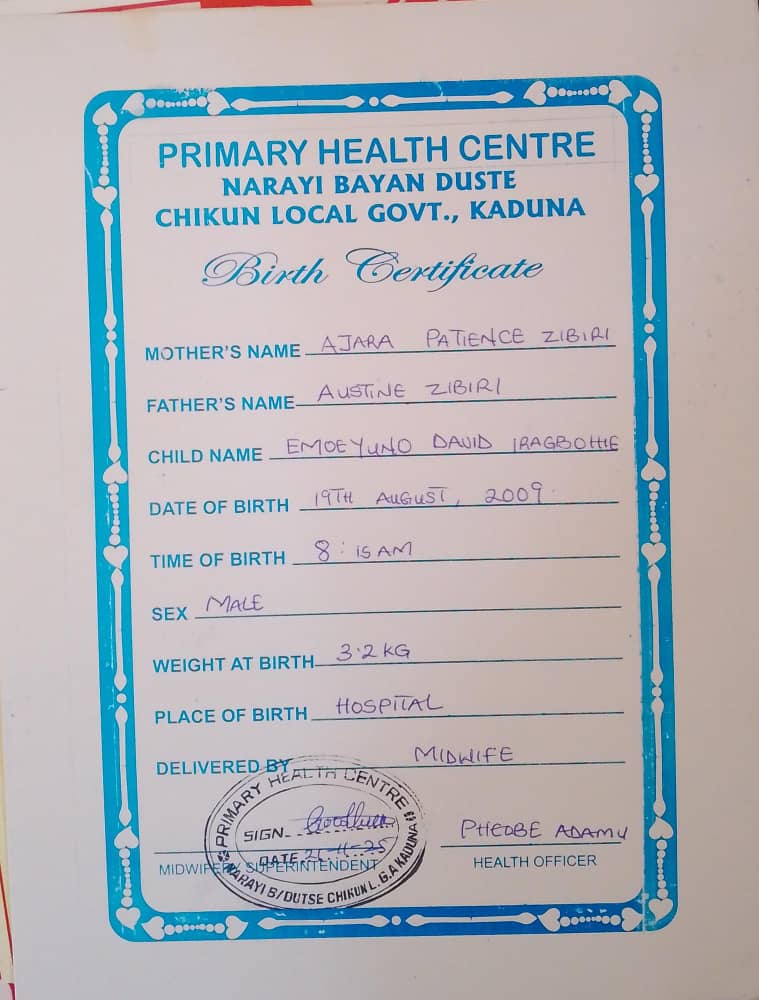 PRIMARY HEALTH CENTRE
NARAYI BAYAN DUSTE
CHIKUN LOCAL GOVT., KADUNA
Birth Certificate
MOTHER'S NAME AJARA PATIENCE ZIBIRI
FATHER'S NAME AUSTINE ZIBIRI
CHILD NAME EMOEYUNO DAVID IRAGBOHIE
DATE OF BIRTH 19TH AUGUST, 2009
TIME OF BIRTH 8:15AM
SEX MALE
WEIGHT AT BIRTH 3.2KG
PLACE OF BIRTH HOSPITAL
DELIVERED BY MIDWIFE
PRIMARY HEALTH CENTRE
SIGN.
DATE 21-11-25
NARAYI B/DUTSE CHIKUN L.G.A KADUNA
PHEOBE ADAMU
MIDWIFERY SUPERINTENDENT HEALTH OFFICER